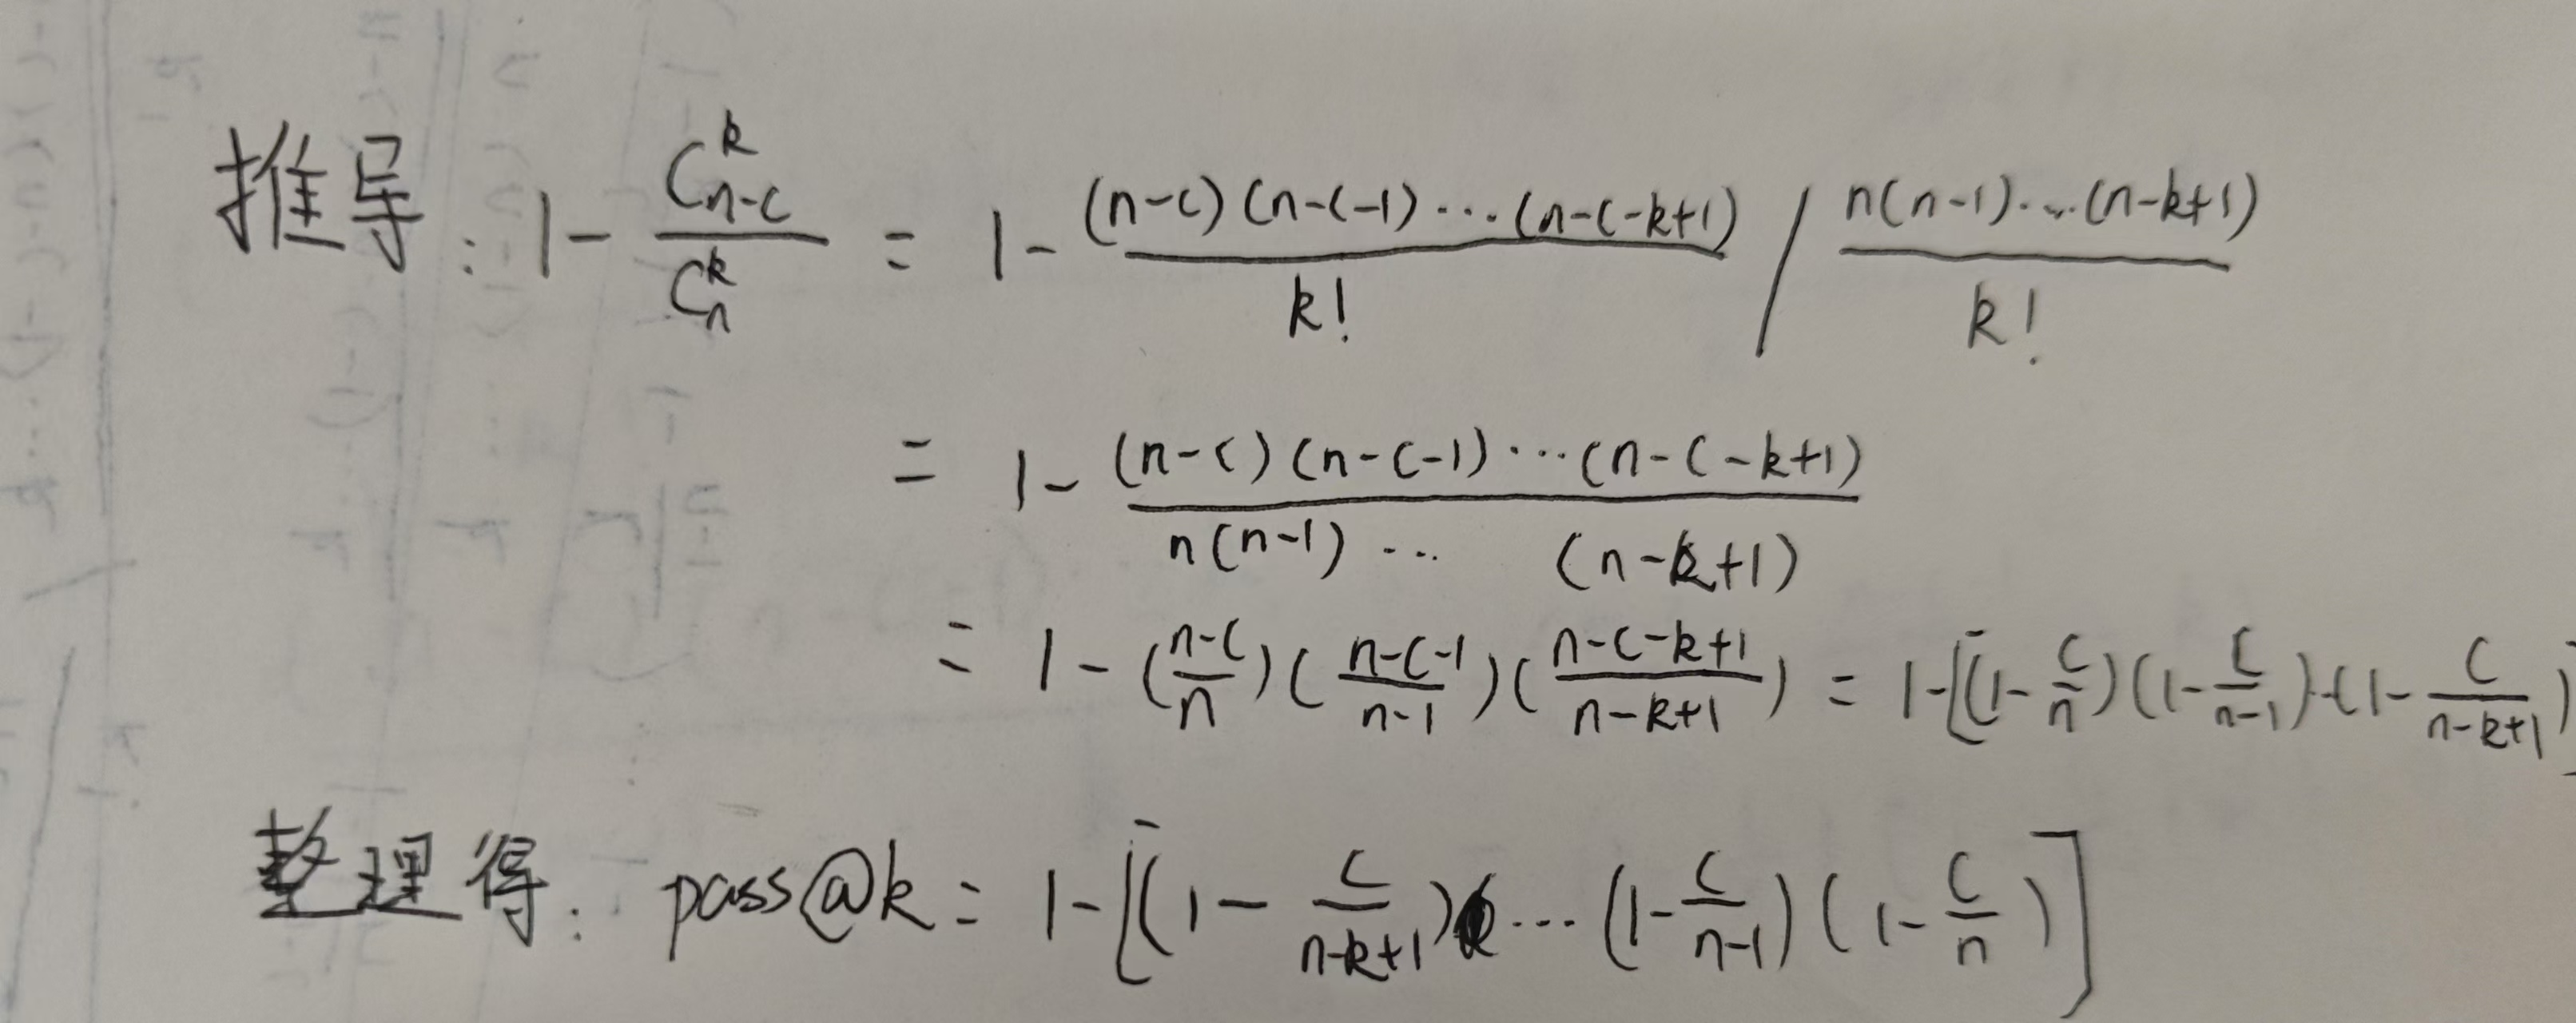 推导: 1 - \frac{C_{n-c}^{k}}{C_{n}^{k}} = 1 - \frac{(n-c)(n-c-1)···(n-c-k+1)}{k!} / \frac{n(n-1)···(n-k+1)}{k!}
= 1 - \frac{(n-c)(n-c-1)···(n-c-k+1)}{n(n-1)···(n-k+1)}
= 1 - (\frac{n-c}{n})(\frac{n-c-1}{n-1})(\frac{n-c-k+1}{n-k+1}) = 1-[(1-\frac{c}{n})(1-\frac{c}{n-1})··(1-\frac{c}{n-k+1})]
整理得: pass@k = 1-[(1-\frac{c}{n-k+1})···(1-\frac{c}{n-1})(1-\frac{c}{n})]